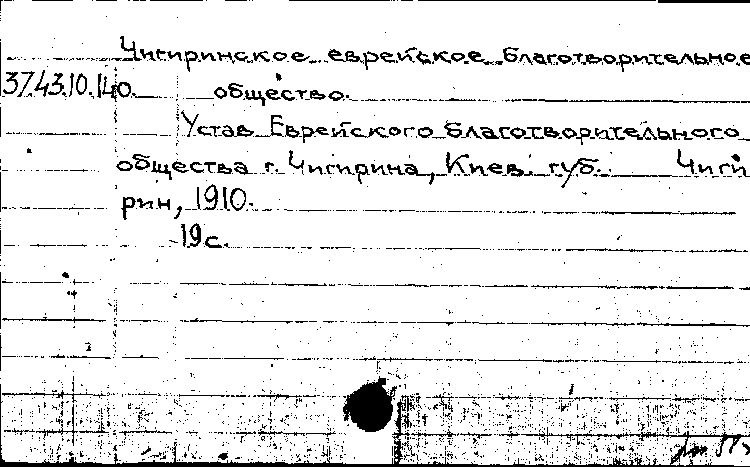 Чигиринское еврейское благотворительное
37.43.10.140. общество.
Устав Еврейского благотворительного
общества г. Чигирина, Киев. губ. Чиги
рин, 1910.
19с.